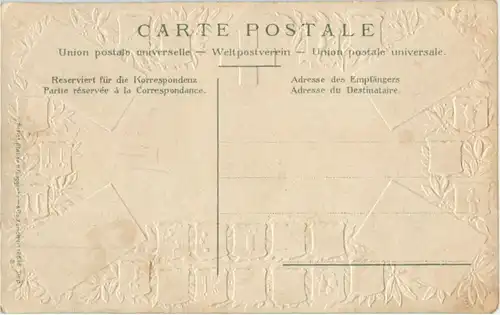 CARTE POSTALE
Union postale universelle — Weltpostverein — Union postale universale.
Reserviert für die Korrespondenz
Partie réservée à la Correspondance.
Adresse des Empfängers
Adresse du Destinataire.